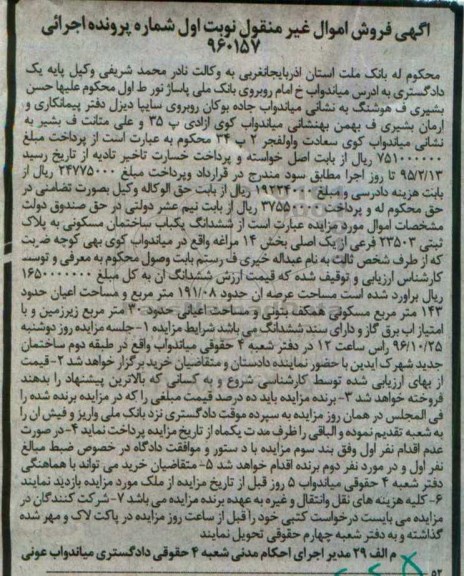 آگهی فروش اموال غیر منقول نوبت اول شماره پرونده اجرائی
۹۶۰۱۵۷
محکوم له بانک ملت استان آذربایجانغربی به وکالت نادر محمد شریفی وکیل پایه یک
دادگستری به ادرس میاندواب خ امام روبروی بانک ملی پاساژ نور ط اول محکوم علیها حسن
بشیری ف هوشنگ به نشانی میاندواب جاده بوکان روبروی سایپا دیزل دفتر پیمانکاری و
آرمان بشیری ف بهمن بهنشانی میاندواب کوی ازادی پ ۳۵ و علی متانت ف بشیر به
نشانی میاندواب کوی سعادت واولفجر ۲ پ ۳۴ محکوم به عبارت است از پرداخت مبلغ
۷۵۱۰۰۰۰۰۰ ریال از بابت اصل خواسته و پرداخت خسارت تاخیر تادیه از تاریخ رسید
۹۵/۲/۱۳ تا روز اجرا مطابق سود مندرج در قرارداد وپرداخت مبلغ ۲۴۷۷۵۰۰۰ ریال از
بابت هزینه دادرسی و مبلغ ۱۹۲۳۴۰۰۰ ریال از بابت حق الوکاله وکیل بصورت تضامنی در
حق محکوم له و پرداخت ریال از بابت نیم عشر دولتی در حق صندوق دولت
مشخصات اموال مورد مزایده عبارت است از ششدانگ یکباب ساختمان مسکونی به پلاک
ثبتی ۲۳۵۰۳ فرعی از یک اصلی بخش ۱۴ مراغه واقع در میاندواب کوی بهی کوچه ضربت
که از طرف شخص ثالث به نام عبداله خیری ف رستم بابت وصول محکوم به معرفی و توسط
کارشناس ارزیابی و توقیف شده که قیمت ارزش ششدانگ ان به کل مبلغ ۱۶۵۰۰۰۰۰۰۰
ریال براورد شده است مساحت عرصه ان حدود ۱۹۱/۰۸ متر مربع و مساحت اعیان حدود
۱۴۳ متر مربع مسکونی همکف بتونی و مساحت اعیانی حدود ۳۰ متر مربع زیرزمین و با
امتیاز اب برق گاز و دارای سند ششدانگ می باشد شرایط مزایده ۱- جلسه مزایده روز دوشنبه
۹۶/۱۰/۲۵ راس ساعت ۱۲ در دفتر شعبه ۴ حقوقی میاندواب واقع در طبقه دوم ساختمان
جدید شهرک ایدین با حضور نماینده دادستان و متقاضیان خرید برگزار خواهد شد ۲- قیمت
از بهای ارزیابی شده توسط کارشناسی شروع و به کسانی که بالاترین پیشنهاد را بدهند
فروخته خواهد شد ۳- برنده مزایده باید ده درصد قیمت مبلغی را که در مزایده برنده شده را
فی المجلس در همان روز مزایده به سپرده موقت دادگستری نزد بانک ملی واریز و فیش ان را
به شعبه تقدیم نموده و الباقی را ظرف مدت یکماه از تاریخ مزایده پرداخت نماید ۴- در صورت
عدم اقدام نفر اول وفق بند سوم مزایده با دستور و موافقت دادگاه در خصوص ضبط مبالغ
نفر اول و در مورد نفر دوم برنده اقدام خواهد شد ۵- متقاضیان خرید می تواند با هماهنگی
دفتر شعبه ۴ حقوقی میاندواب ۵ روز قبل از تاریخ مزایده از ملک مورد مزایده بازدید نمایند
۶- کلیه هزینه های نقل وانتقال و غیره به عهده برنده مزایده می باشد ۷- شرکت کنندگان در
مزایده می بایست درخواست کتبی خود را قبل از ساعت روز مزایده در پاکت لاک و مهر شده
گذاشته و به دفتر شعبه چهارم حقوقی تحویل نمایند
م الف ۲۹ مدیر اجرای احکام مدنی شعبه ۴ حقوقی دادگستری میاندواب عونی
۵۲